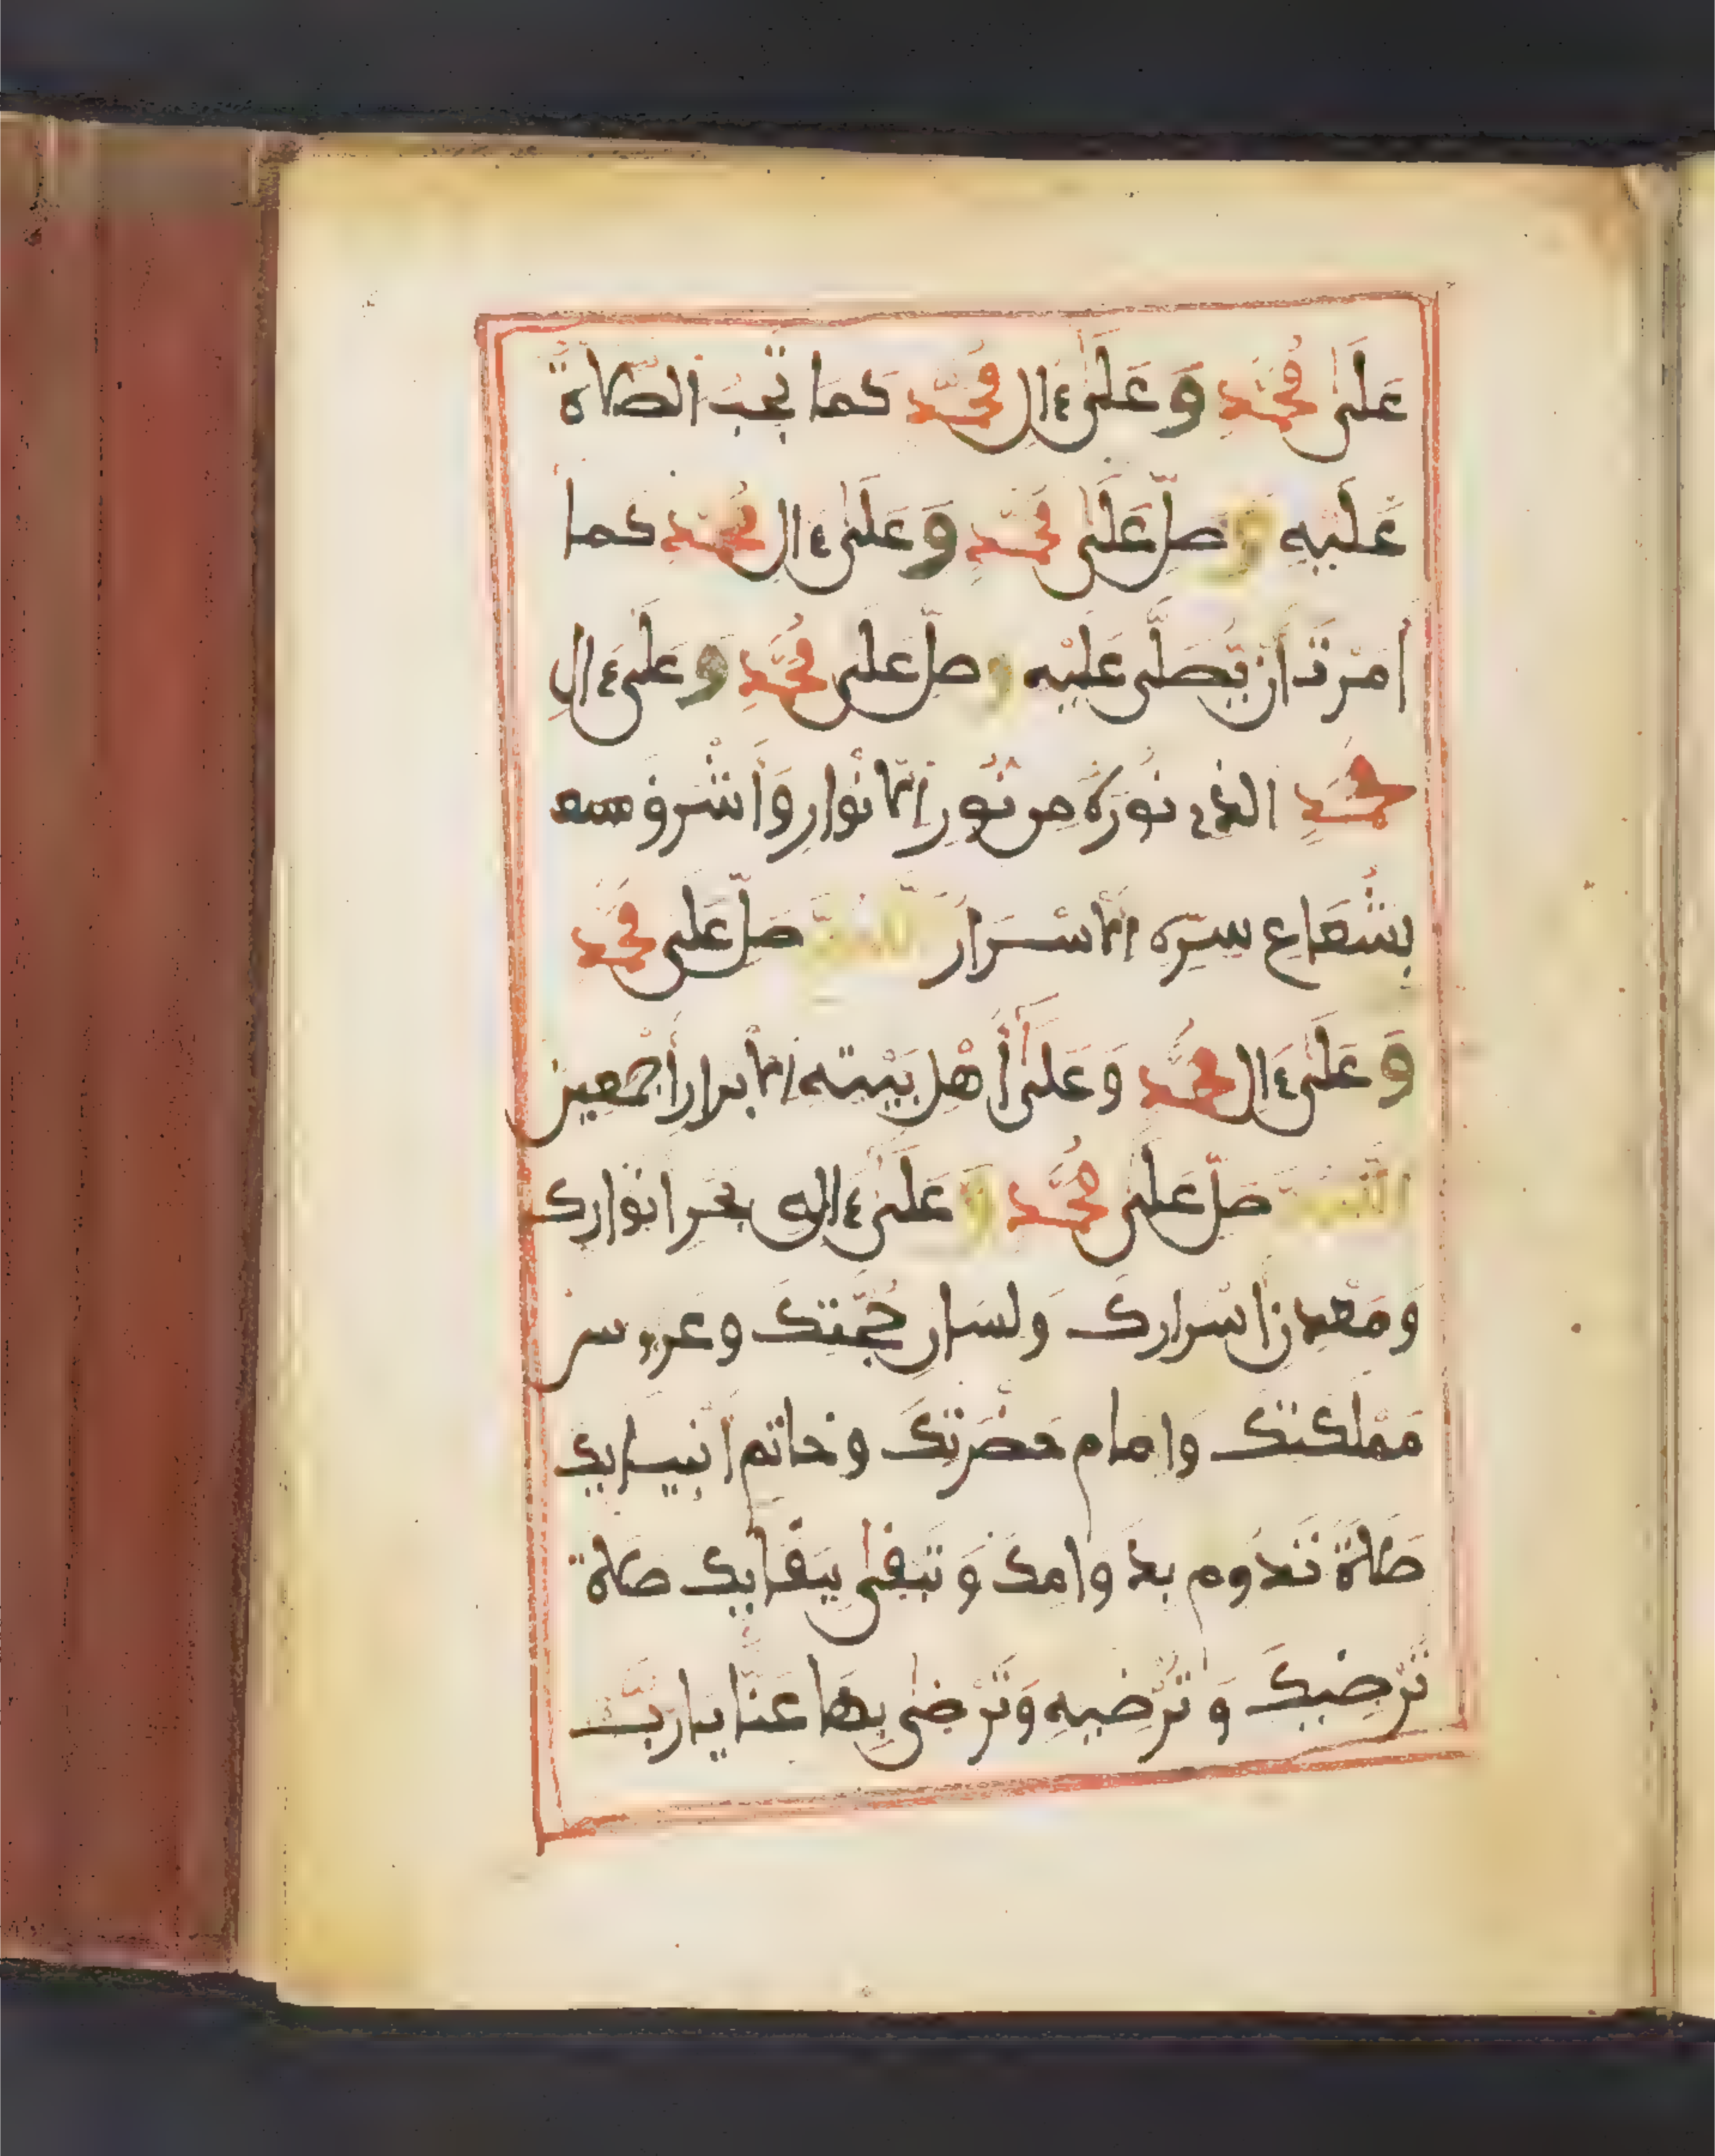 عَلَىٰ مُحَمَّدٍ وَعَلَىٰ ءَالِ مُحَمَّدٍ كَمَا تَجِبُ الصَّلَاةُ
عَلَيْهِ وَصَلِّ عَلَىٰ مُحَمَّدٍ وَعَلَىٰ ءَالِ مُحَمَّدٍ كما
امَرْتَ أَن يُّصَلَّى عَلَيْهِ وَصَلِّ عَلَى مُحَمَّدٍ وَعَلَىٰ ءَالِ
مُحَمَّدٍ الذي نُورُهُ مِن نُّورِ الْأَنْوَارِ وَأَشْرَقَ
بِشُعَاعِ سِرِّهِ الْأَسْرَارُ اللَّهُمَّ صَلِّ عَلَى مُحَمَّدٍ
وَعَلَىٰ ءَالِ مُحَمَّدٍ وَعَلَىٰ أَهْلِ بَيْتِهِ الْأَبْرَارِ أَجْمَعِين
اللَّهُمَّ صَلِّ عَلَى مُحَمَّدٍ وَعَلَىٰ ءَالِهِ بَحْرِ انْوَارِكَ
وَمَعْدِنِ أَسْرَارِكَ وَلِسَانِ حُجَّتِكَ وَعَرُوسِ
مَمْلَكَتِكَ وَامَامِ حَضْرَتِكَ وَخَاتَمِ أَنْبِيَايِكَ
صَلَاةً تَدُومُ بِدَوَامِكَ وَتَبْقَىٰ بِبَقَايِكَ صَلَاةً
تُرْضِيكَ وَتُرْضِيهِ وَتَرْضَىٰ بِهَا عَنَّا يَا رَبَّ